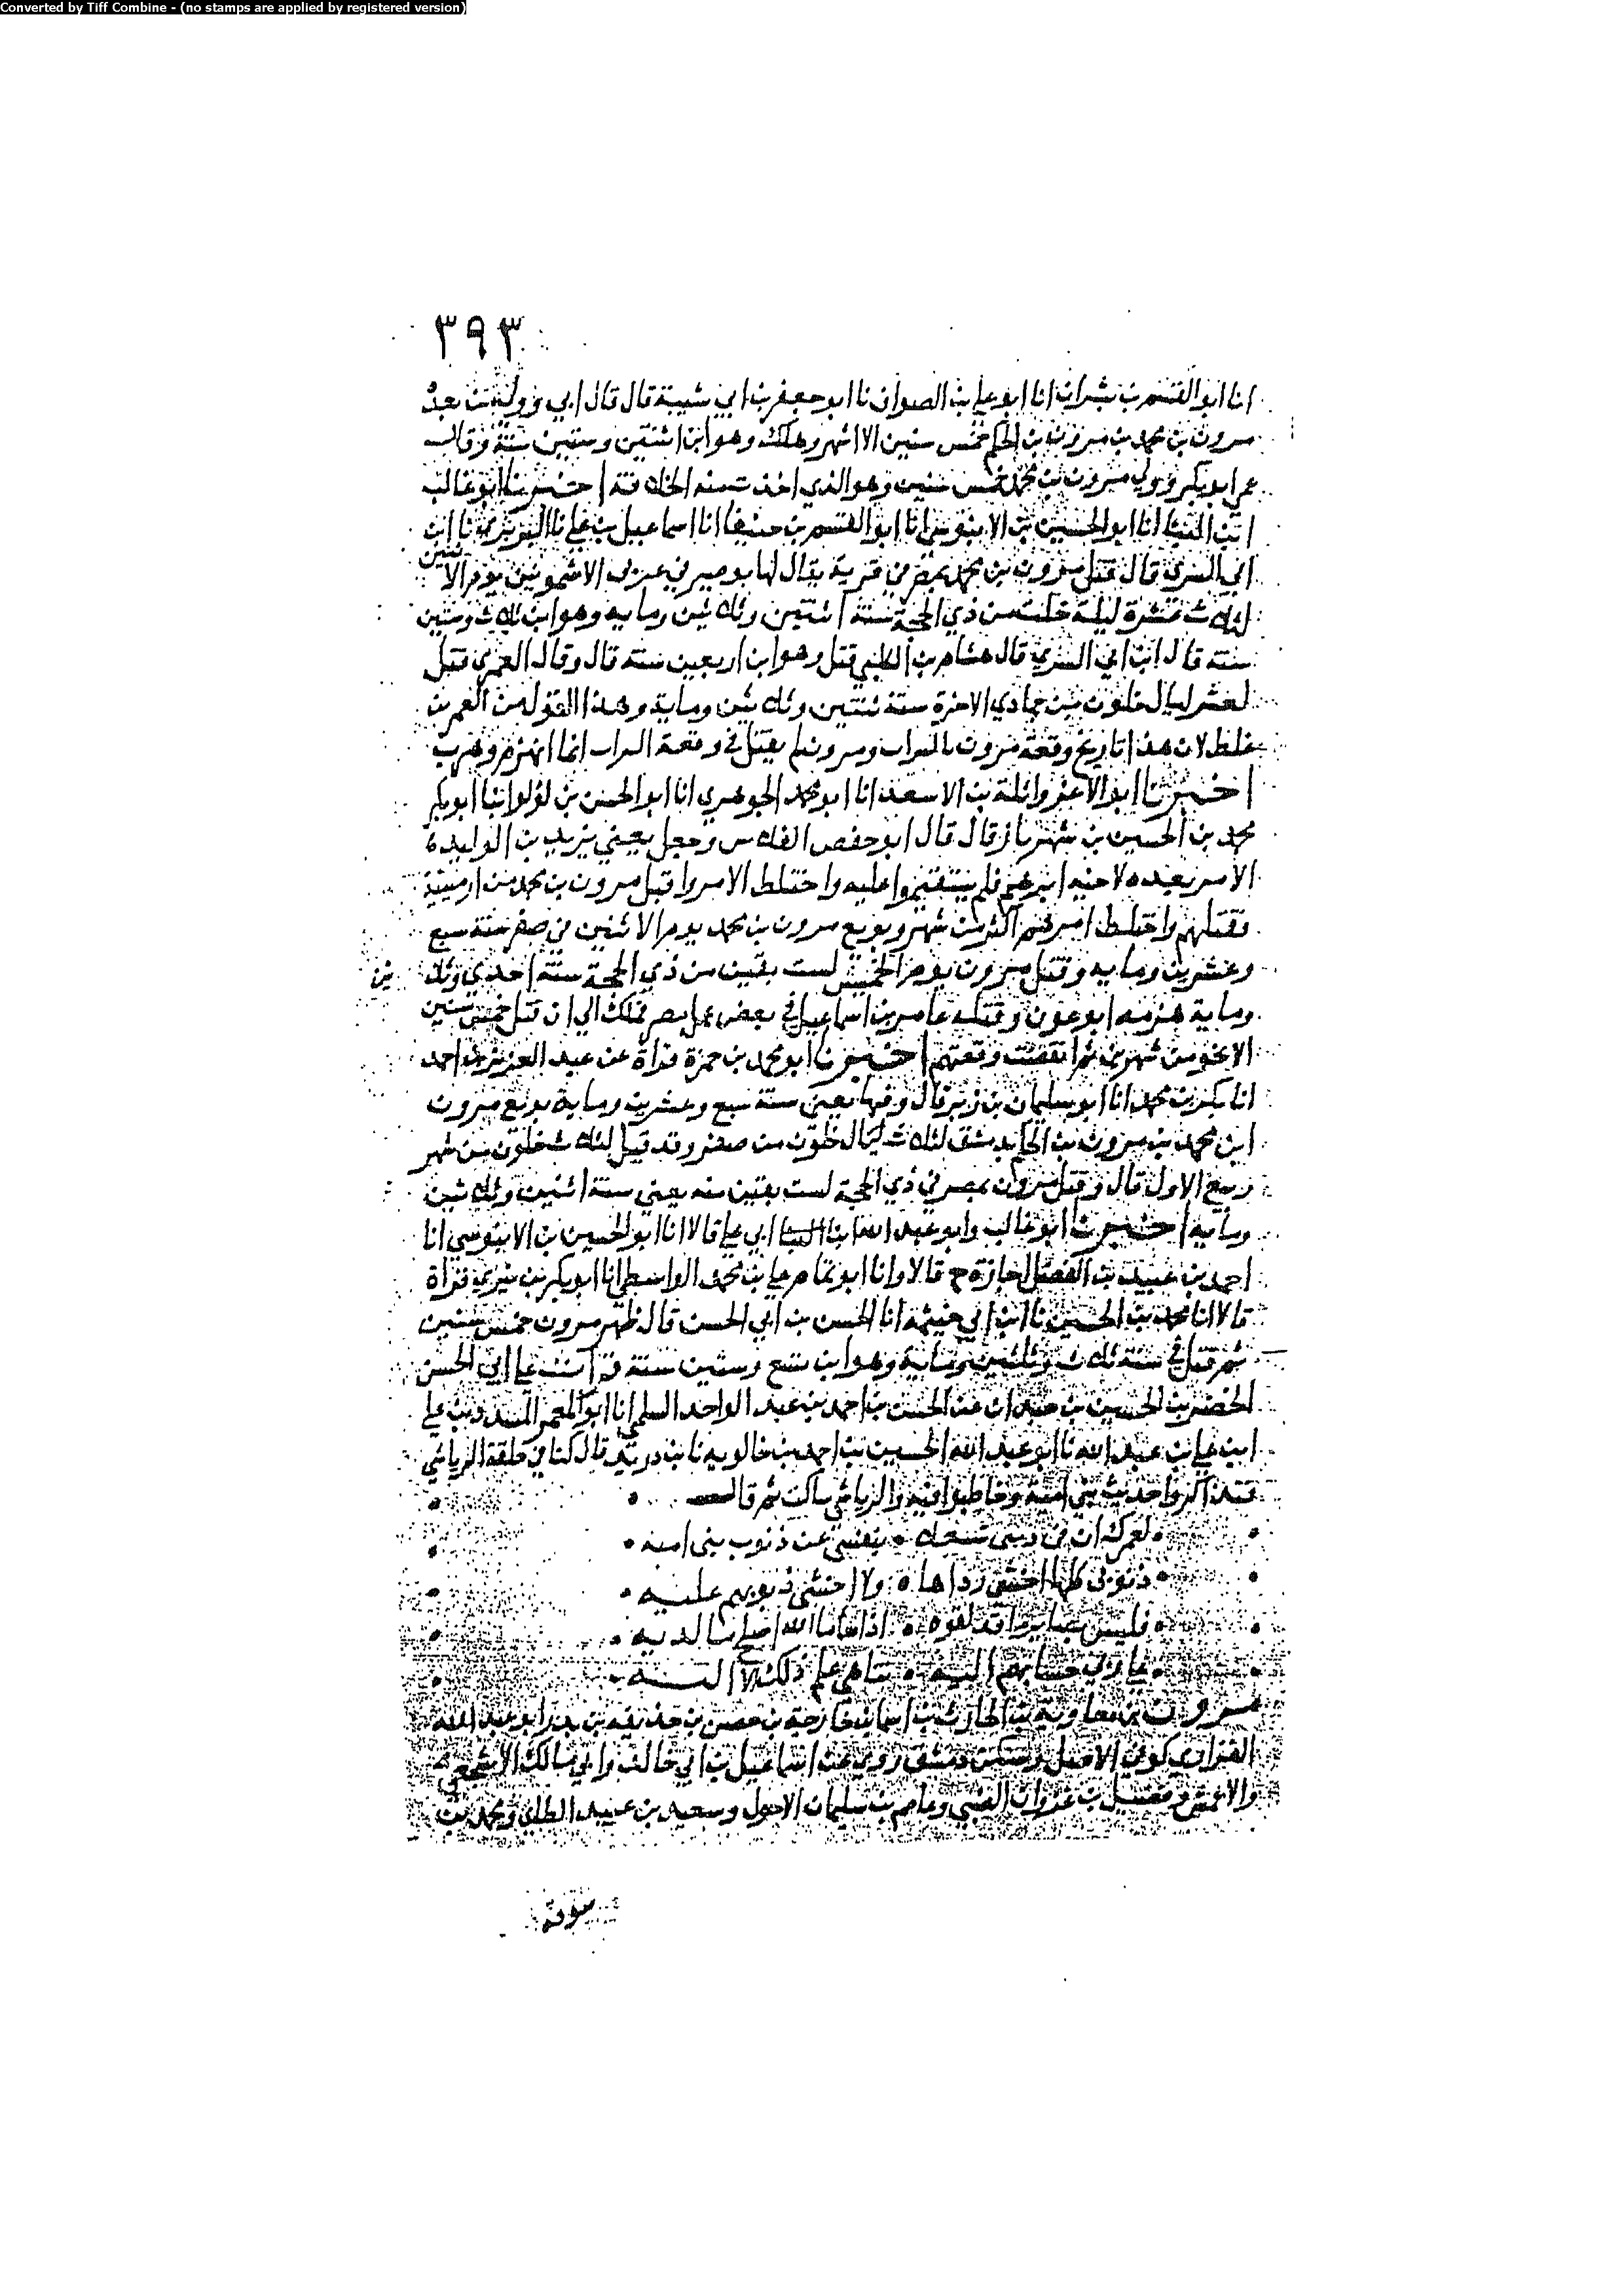 Converted by Tiff Combine - (no stamps are applied by registered version)
٣٩٣
انا ابو القسم بن بشران انا ابو علي بن الصواف نا ابو جعفر بن ابي شيبة قال قال ابي وولي بعد
مرون بن محمد بن مرون بن الحكم خمس سنين الا اشهر وهلك وهو ابن اثنتين وستين سنة وقال
عمي ابو بكر وولي مرون بن محمد خمس سنين وهو الذي اخذت منه الخلافة اخبرنا ابو غالب
ابن البنا انا ابو الحسين بن الابنوسي انا ابو القسم بن حنيفا انا اسماعيل بن علي نا البربري نا ابن
ابي السري قال قتل مرون بن محمد بمصر في قرية يقال لها بوصير في عزبي الاشمونين يوم الاثنين
لثلاث عشرة ليلة خلت من ذي الحجة سنة اثنتين وثلاثين وماية وهو ابن ثلاث وستين
سنة قال ابن ابي السري قال هشام بن الكلبي قتل وهو ابن اربعين سنة قال وقال العمري قتل
لعشر ليال خلون من جمادي الاخرة سنة ثنتين وثلاثين وماية وهذا القول من العمري
غلط لان هذا تاريخ وقعة مرون بالزاب ومرون لم يقتل في وقعة الزاب انما انهزم وهرب
اخبرنا ابو الاعز واثلة بن الاسعد انا ابو محمد الجوهري انا ابو الحسن بن لؤلؤ انبا ابو بكر
محمد بن الحسين بن شهريار قال قال ابو حفص الفلاس وجعل يعني يزيد بن الوليد
الامر بعده لاخيه ابرهيم فلم يستقيموا عليه واختلط الامر واقبل مرون بن محمد من ارمينية
فقتلهم واختلط امرهم اكثر من شهر وبويع مرون بن محمد يوم الاثنين من صفر سنة سبع
وعشرين وماية وقتل مرون يوم الخميس لست بقين من ذي الحجة سنة احدي وثلاثين
وماية هزمه ابو عون وقتله عامر بن اسماعيل في بعض عمل مصر فملك الي ان قتل خمس سنين
الا نحو من شهرين ثم انقضت وقعتهم اخبرنا ابو محمد بن حمزة قراة عن عبد العزيز بن احمد
انا مكي بن محمد انا ابو سليمان بن زبر قال وفيها يعني سنة سبع وعشرين وماية بويع مرون
ابن محمد بن مرون بن الحكم بدمشق لثلاث ليال خلون من صفر وقد قيل لثلاث خلون من شهر
ربيع الاول قال وقتل مرون بمصر في ذي الحجة لست بقين منه يعني سنة اثنين وثلاثين
وماية اخبرنا ابو غالب وابو عبد الله ابنا ابي علي قالا انا ابو الحسين بن الابنوسي انا
احمد بن عبيد بن الفضل اجازة ح قالا وانا ابو تمام علي بن محمد الواسطي انا ابو بكر بن بيري قراة
قالا انا محمد بن الحسين نا ابن ابي خيثمة انا الحسن بن ابي الحسن قال ظهر مرون خمس سنين
ثم قتل في سنة ثلاث وثلثين وماية وهو ابن تسع وستين سنة قرات علي ابي الحسن
الخضر بن الحسين بن عبدان عن الحسن بن احمد بن عبد الواحد السلمي انا ابو المعمر المسدد بن علي
ابن علي بن عبد الله نا ابو عبد الله الحسين بن احمد بن خالويه نا بن دريد قال كنا في حلقة الرياشي
فتذاكروا حديث بني امية وخاطبوا فيه والرياشي ساكت ثم قال
لعمرك ان في ذنبي لشغلا بنفسي عن ذنوب بني امية
ذنوبي كلها اخشي رداها ولا اخشي ذنوبهم عليه
فليس بضايري ما قد لقوه اذا ما الله اصلح ما لديه
علي ربي حسابهم اليه تناهي علم ذلك لا اليه
مرون بن معاوية بن الحارث بن اسما بن خارجة بن حصن بن حذيفة بن بدر ابو عبد الله
الفزاري كوفي الاصل وسكن دمشق روي عن اسماعيل بن ابي خالد وابي مالك الاشجعي
والاعمش وفضيل بن غزوان الضبي وعاصم بن سليمان الاحول وسعيد بن عبيد الطائي ومحمد بن
سوقة